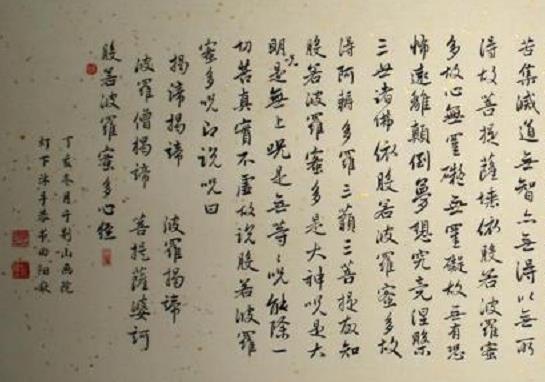 苦集滅道無智亦無得以無所
得故菩提薩埵依般若波羅蜜
多故心無罣礙無罣礙故無有恐
怖遠離顛倒夢想究竟涅槃
三世諸佛依般若波羅蜜多故
得阿耨多羅三藐三菩提故知
般若波羅蜜多是大神咒是大
明咒是無上咒是無等々咒能除一
切苦真實不虛故說般若波羅
蜜多咒即說咒曰
揭諦揭諦 波羅揭諦
波羅僧揭諦 菩提薩婆訶
般若波羅蜜多心經
丁亥冬月于荆山画院
灯下沐手恭